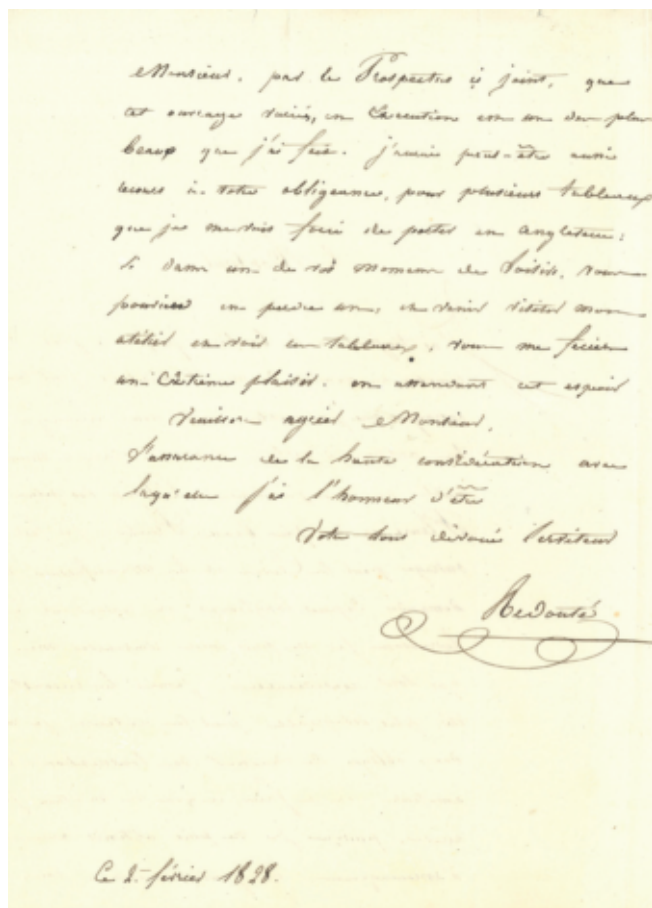 Monsieur, par le Prospectus ci joint, que
cet ouvrage réuni, en Execution est un des plus
beaux que j'ai fait. j'aurai peut-être aussi
recours à votre obligeance, pour plusieurs tableaux
que je me vois forcé de porter en angleterre;
si dans un de vos momens de Loisir, vous
pouviez en perdre un, et venir visiter mon
atélier et voir ces tableaux, vous me feriez
un Extrême plaisir. en attendant cet espoir
Veuillez agréer Monsieur,
l'assurance de la haute considération avec
laquelle j'ai l'honneur d'être
Votre tout dévoué Serviteur
Redouté
Ce 2 février 1828.